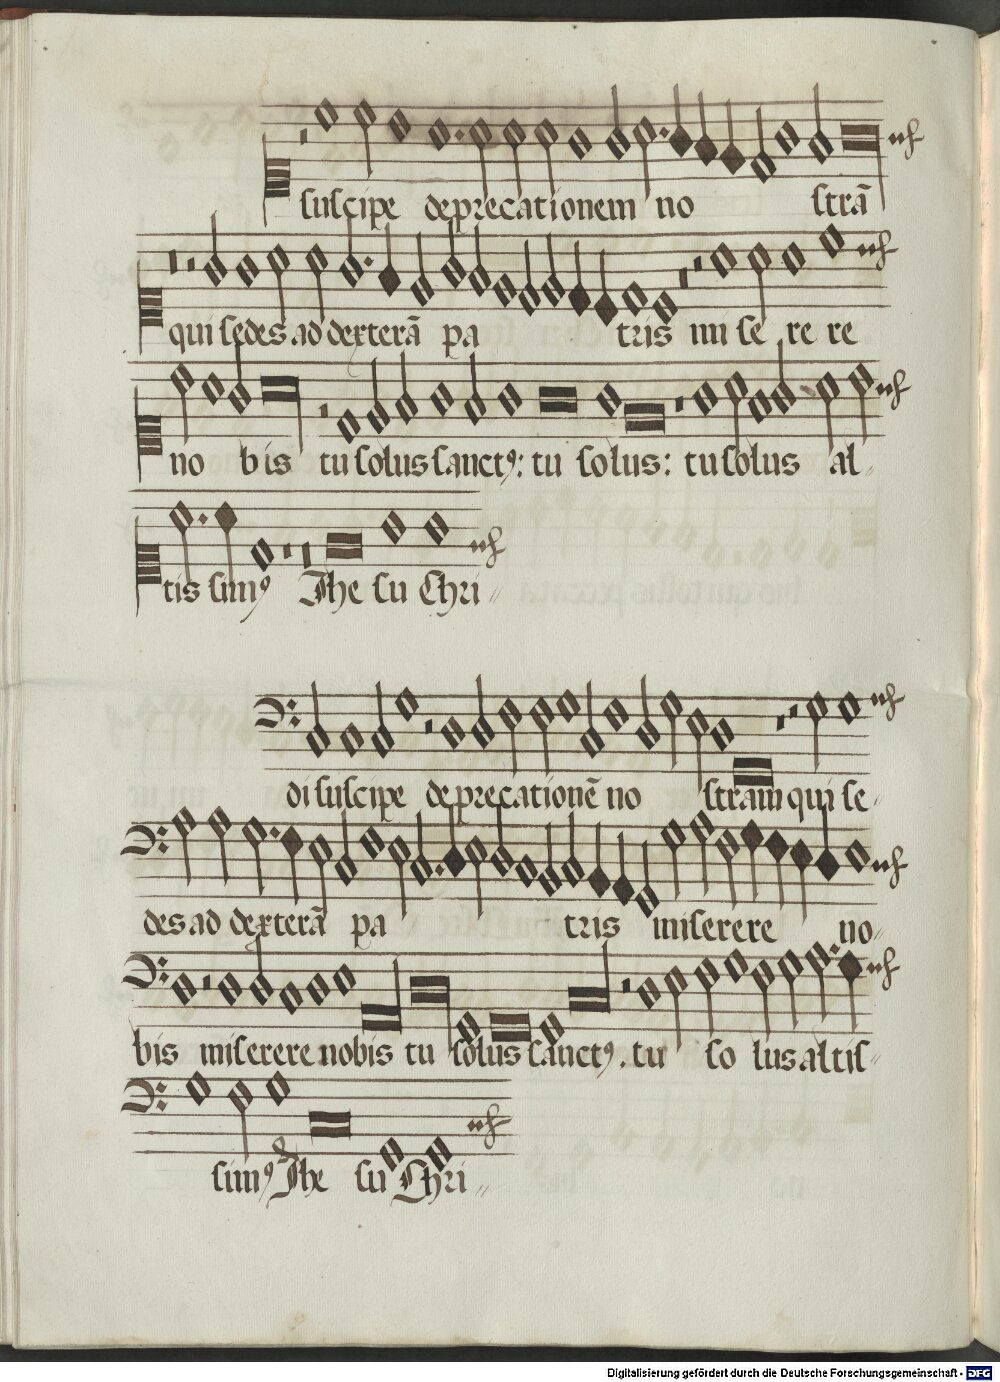 suscipe deprecationem no strā
qui sedes ad dexterā pa tris mi se re re
no bis tu solus sanctꝰ: tu solus: tu solus al-
tis simꝰ Jhe su Chri -
di suscipe deprecationē no stram qui se-
des ad dexterā pa tris miserere no-
bis miserere nobis tu solus sanctꝰ. tu so lus altis-
simꝰ Jhe su Chri -
Digitalisierung gefördert durch die Deutsche Forschungsgemeinschaft - DFG